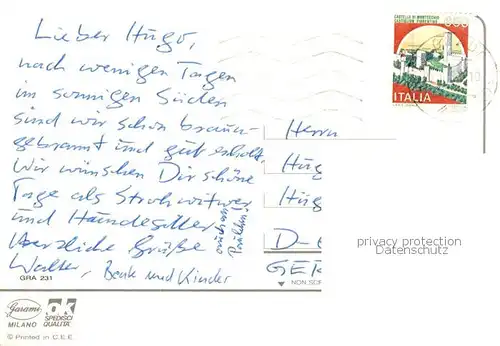 Lieber Hugo,
nach wenigen Tagen
im sonnigen Süden
sind wir schön braun-
gebrannt und gut erholt.
Wir wünschen Dir schöne
Tage als Strohwitwer
und
Herzliche Grüße
Walter, Beate und Kinder
GRA 231
Garami
MILANO
OK
SPEDISCI
QUALITÀ
© Printed in C.E.E.
CASTELLO DI MONTECCHIO
CASTIGLION FIORENTINO
ITALIA
Herrn
Hug
Hüg
D-
GER
NON SCR
privacy protection
Datenschutz